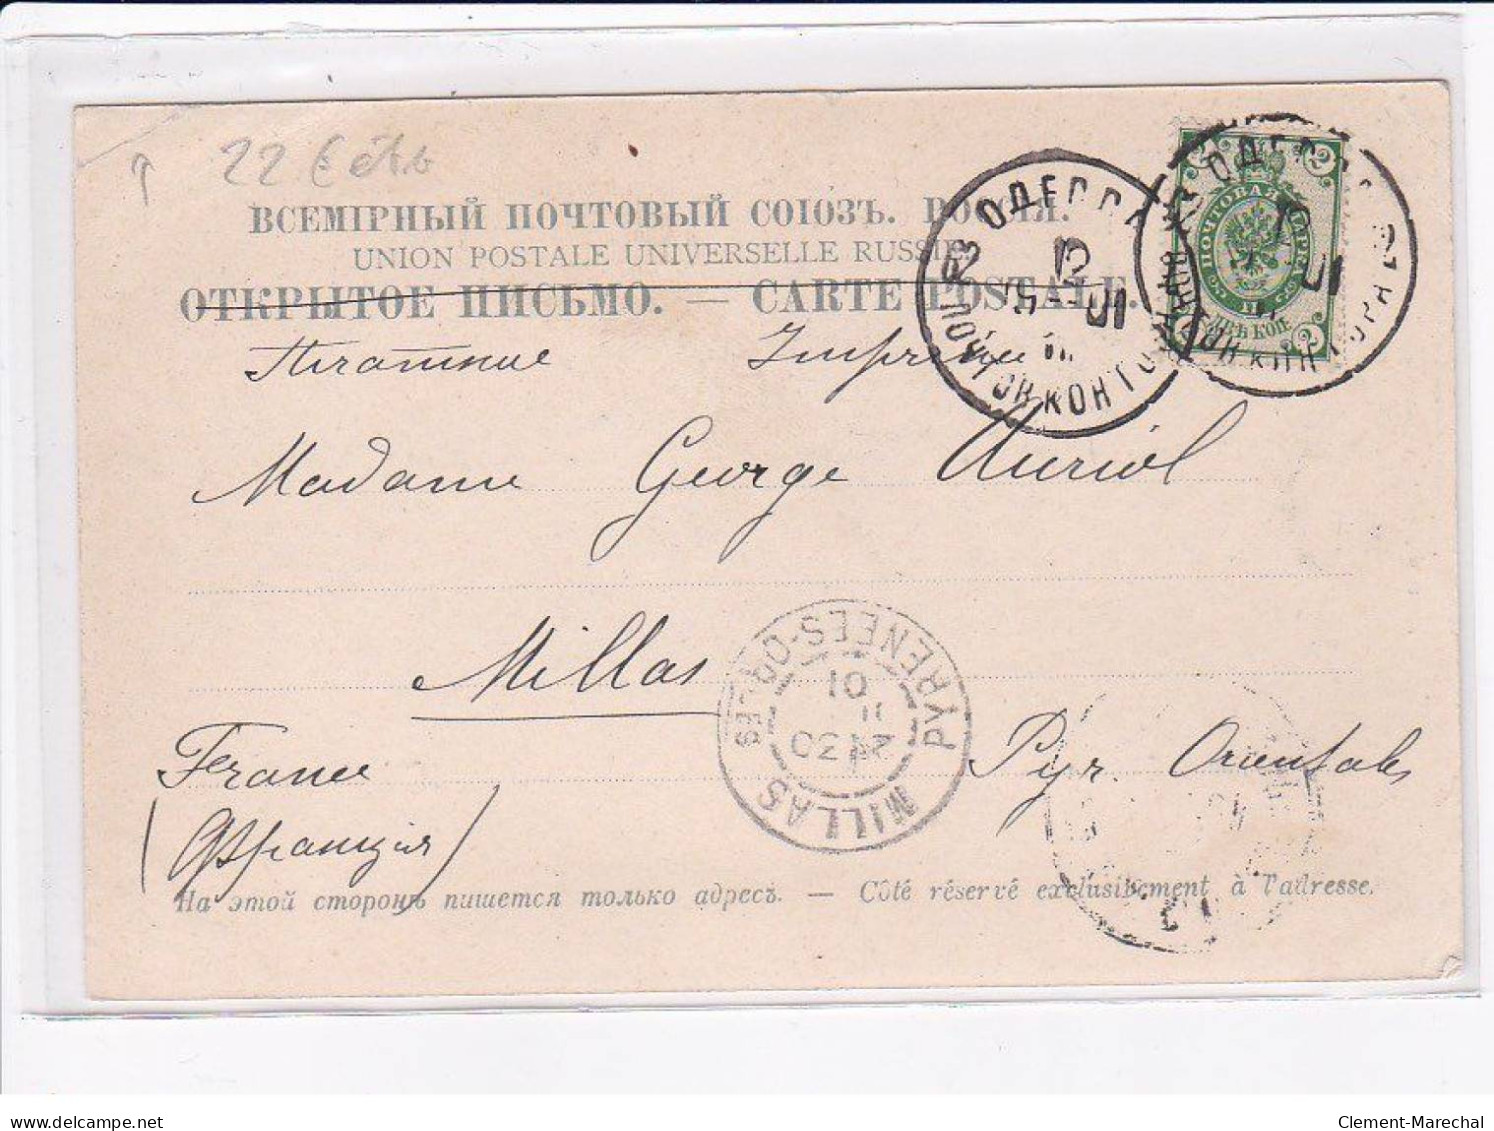 22
ВСЕМІРНЫЙ ПОЧТОВЫЙ СОЮЗЪ. РОССІЯ.
UNION POSTALE UNIVERSELLE RUSSIE
ОТКРЫТОЕ ПИСЬМО. — CARTE POSTALE.
ОДЕССА
ПОЧТОВ КОНТОРА
01
ОДЕССА
01
ПОЧТОВАЯ МАРКА
2
Imprimé
Madame George Auriol
Millas
PYRENEES-OR-LES
01
MILLAS
France
Pyr. Orientales
(Франция)
На этой сторонѣ пишется только адресъ. — Côté réservé exclusivement à l'adresse.
Clement-Marechal
delcampe.net